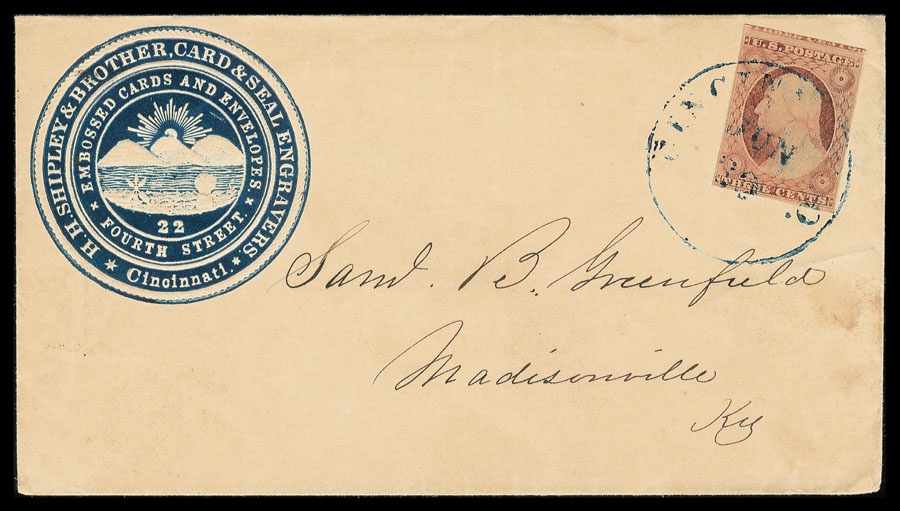 H.H. SHIPLEY & BROTHER, CARD & SEAL ENGRAVERS
EMBOSSED CARDS AND ENVELOPES.
22
FOURTH STREET
Cincinnati.
U.S. POSTAGE
THREE CENTS
JUN
Sand. B. Greenfield
Madisonville
Ky